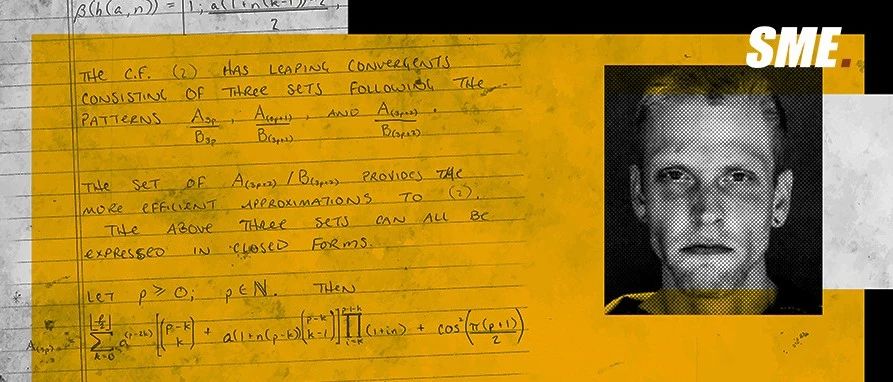 β(h(a,n)) = [1; a(1+n(k-1)) 2,
2
SME.
THE C.F. (2) HAS LEAPING CONVERGENTS
CONSISTING OF THREE SETS FOLLOWING THE
PATTERNS A_{3p}/B_{3p}, A_{(3p+1)}/B_{(3p+1)}, AND A_{(3p+2)}/B_{(3p+2)}.
THE SET OF A_{(3p+2)}/B_{(3p+2)} PROVIDES THE
MORE EFFICIENT APPROXIMATIONS TO (2).
THE ABOVE THREE SETS CAN ALL BE
EXPRESSED IN CLOSED FORMS.
LET p ≥ 0; p ∈ ℕ. THEN
A_{(3p)} = \sum_{k=0}^{⌊p/2⌋} a^{(p-2k)} [\binom{p-k}{k} + a(1+n(p-k)\binom{p-k}{k-1}] \prod_{i=k}^{p+k} (1+in) + cos²(π(p+1)/2)